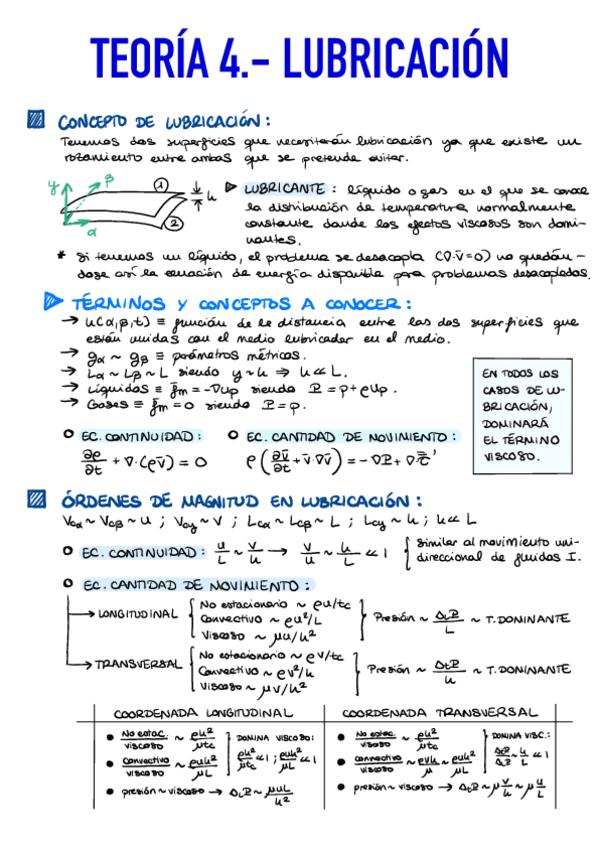 TEORÍA 4.- LUBRICACIÓN
CONCEPTO DE LUBRICACIÓN:
Tenemos dos superficies que necesitarán lubricación ya que existe un
rozamiento entre ambas que se pretende evitar.
y β α 1 2 h
LUBRICANTE: líquido o gas en el que se conoce
la distribución de temperatura normalmente
constante donde los efectos viscosos son domi-
nantes.
* Si tenemos un líquido, el problema se desacopla (∇·v̄=0) no quedán-
dose así la ecuación de energía disponible para problemas desacoplados.
TÉRMINOS Y CONCEPTOS A CONOCER:
→ h(α,β,t) ≡ función de la distancia entre las dos superficies que
están unidas con el medio lubricador en el medio.
→ gα ~ gβ ≡ parámetros métricos.
→ Lα ~ Lβ ~ L siendo y~h ⇒ h≪L.
→ Líquidos ≡ f̄m = -∇Up siendo P = p+ρUp.
→ Gases ≡ f̄m = 0 siendo P = p.
EN TODOS LOS
CASOS DE LU-
BRICACIÓN,
DOMINARÁ
EL TÉRMINO
VISCOSO.
EC. CONTINUIDAD:
∂ρ/∂t + ∇·(ρv̄) = 0
EC. CANTIDAD DE MOVIMIENTO:
ρ(∂v̄/∂t + v̄·∇v̄) = -∇P + ∇·τ̄'
ÓRDENES DE MAGNITUD EN LUBRICACIÓN:
Vcα ~ Vcβ ~ u ; Vcy ~ V ; Lcα ~ Lcβ ~ L ; Lcy ~ h ; h≪L
EC. CONTINUIDAD: u/L ~ v/h → v/u ~ h/L ≪ 1 { Similar al movimiento uni-
direccional de fluidos I.
EC. CANTIDAD DE MOVIMIENTO:
LONGITUDINAL { No estacionario ~ ρu/tc
Convectivo ~ ρu²/L
Viscoso ~ μu/h² } Presión ~ ΔLP/L ~ T. DOMINANTE
TRANSVERSAL { No estacionario ~ ρv/tc
Convectivo ~ ρv²/h
Viscoso ~ μv/h² } Presión ~ ΔtP/h ~ T. DOMINANTE
COORDENADA LONGITUDINAL
No estac./viscoso ~ ρh²/μtc
convectivo/viscoso ~ ρuh²/μL
} DOMINA VISCOSO:
ρh²/μtc ≪ 1 ; ρuh²/μL ≪ 1
presión ~ viscoso → ΔLP ~ μuL/h²
COORDENADA TRANSVERSAL
No estac./viscoso ~ ρh²/μtc
convectivo/viscoso ~ ρvh/μ ~ ρuh²/μL
} DOMINA VISC.:
ΔtP/ΔLP ~ h/L ≪ 1
presión ~ viscoso → ΔtP ~ μ v/h ~ μ u/L